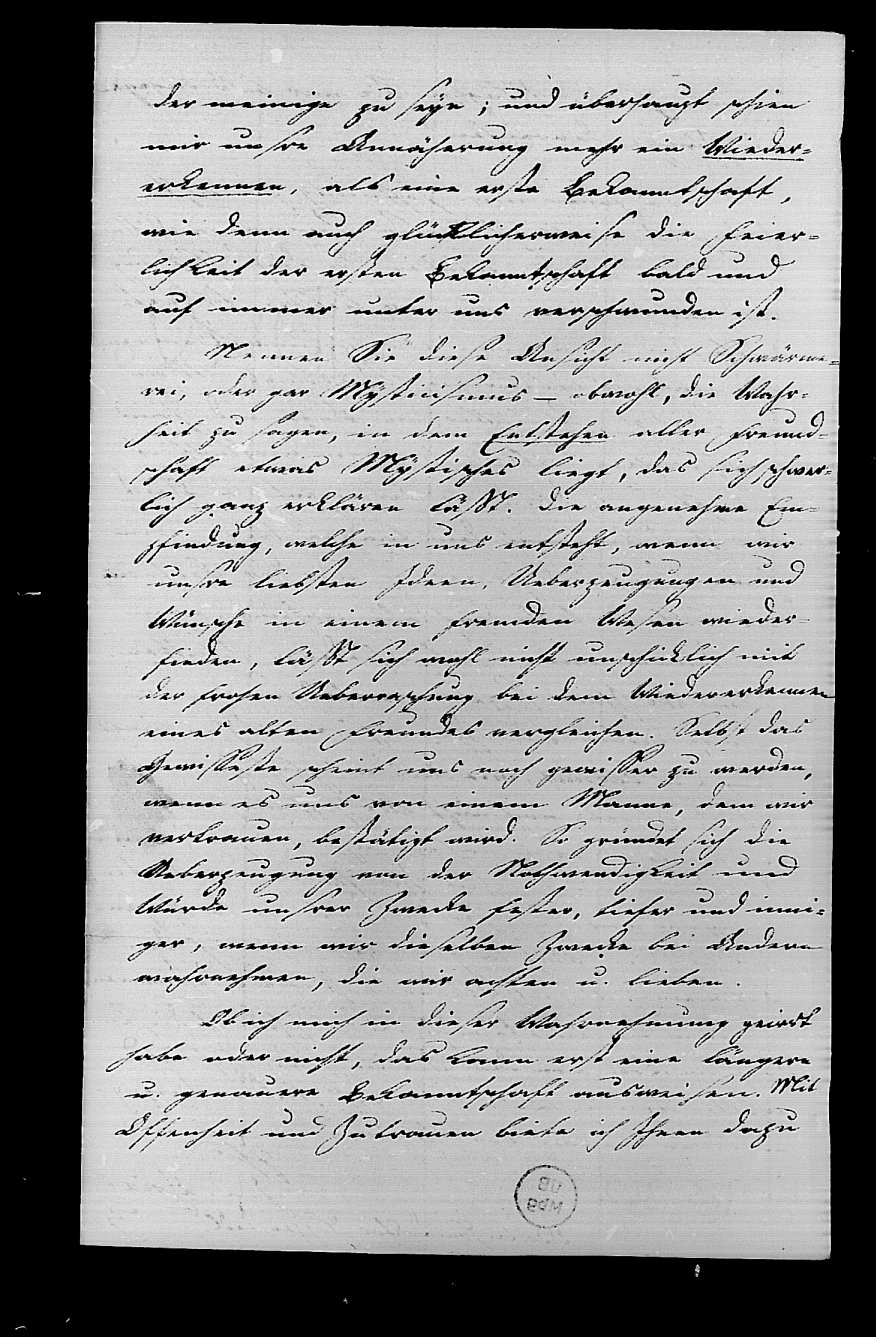 der meinige zu seyn; und überhaupt schien
mir unsre Annäherung mehr ein Wieder-
erkennen, als eine erste Bekanntschaft,
wie denn auch glücklicherweise die Feier-
lichkeit der ersten Bekanntschaft bald und
auf immer unter uns verschwunden ist.
Nennen Sie diese Ansicht nicht Schwärme-
rei, oder gar Mysticismus – obwohl, die Wahr-
heit zu sagen, in dem Entstehen aller Freund-
schaft etwas Mystisches liegt, das sich schwer-
lich ganz erklären läßt. Die angenehme Em-
pfindung, welche in uns entsteht, wenn wir
unsre liebsten Ideen, Ueberzeugungen und
Wünsche in einem fremden Wesen wieder-
finden, läßt sich wohl nicht unschicklich mit
der frohen Ueberraschung bei dem Wiedererkennen
eines alten Freundes vergleichen. Selbst das
Gewisseste scheint uns noch gewisser zu werden,
wenn es uns von einem Manne, dem wir
vertrauen, bestätigt wird. So gründet sich die
Ueberzeugung von der Nothwendigkeit und
Würde unsrer Zwecke fester, tiefer und inni-
ger, wenn wir dieselben Zwecke bei Andern
wahrnehmen, die wir achten u. lieben.
Ob ich mich in dieser Wahrnehmung geirrt
habe oder nicht, das kann erst eine längere
u. genauere Bekanntschaft ausweisen. Mit
Offenheit und Zutrauen biete ich Ihnen dazu